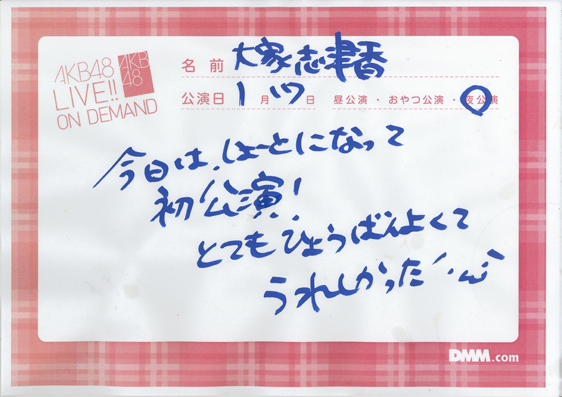 AKB48
LIVE!!
ON DEMAND
AKB
48
名前 大家志津香
公演日 1月17日 昼公演・おやつ公演・夜公演
今日は、しょーとになって
初公演!
とてもひょうばんよくて
うれしかった
DMM.com